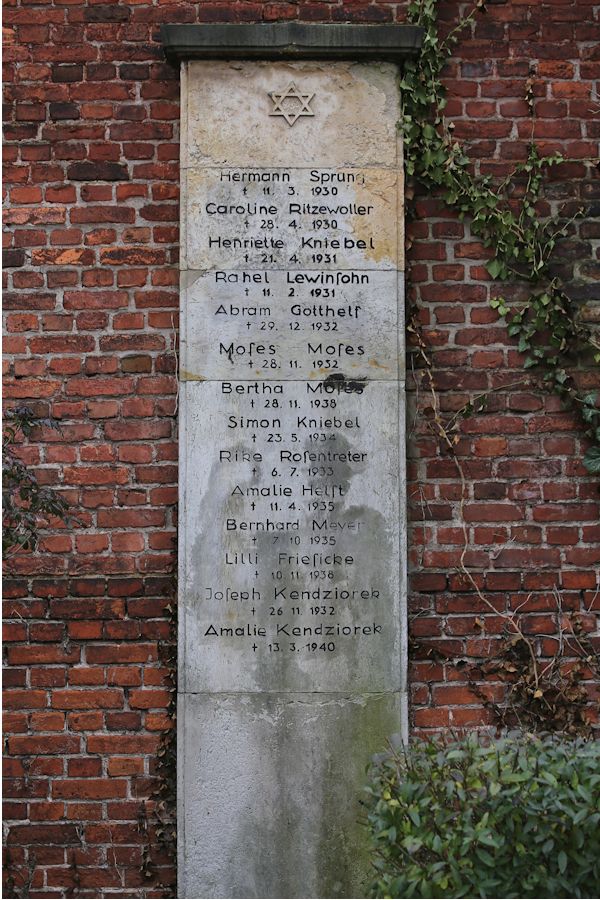 Hermann Sprung
† 11. 3. 1930
Caroline Ritzewoller
† 28. 4. 1930
Henriette Kniebel
† 21. 4. 1931
Rahel Lewinſohn
† 11. 2. 1931
Abram Gotthelf
† 29. 12. 1932
Moſes Moſes
† 28. 11. 1932
Bertha Moſes
† 28. 11. 1938
Simon Kniebel
† 23. 5. 1934
Rike Roſentreter
† 6. 7. 1933
Amalie Helft
† 11. 4. 1935
Bernhard Meyer
† 7. 10. 1935
Lilli Frieſicke
† 10. 11. 1938
Joſeph Kendziorek
† 26. 11. 1932
Amalie Kendziorek
† 13. 3. 1940